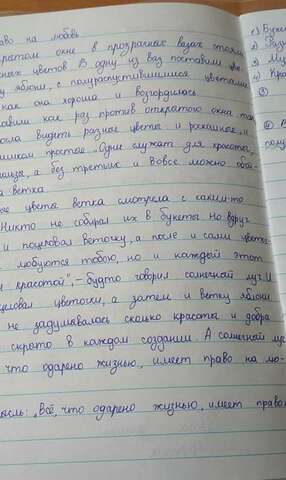 аво на любовь
крытом окне в прозрачных вазах стояли
сных цветов. В одну из ваз поставили цве-
ку яблони, с полураспустившимися цветами
как она хороша и возгордилась
авили как раз против открытого окна так
огла видеть разные цветы и роскошные, и
ишком простые. "Одни служат для красоты,
а без третьих и вовсе можно обой-
а ветка.
ые цвета ветка смотрела с каким-то
Никто не собирал их в букеты. Но вдруг
и поцеловал веточку, а после и сами цветы-
любуются тобою, но и каждый этот
и красотой", – будто говорил солнечный луч. И
целовал цветочки, а затем и ветку яблони
не задумывалась сколько красоты и добра
скрыто в каждом создании. А солнечный лу-
что одарено жизнью, имеет право на лю-
ысль: „Всё, что одарено жизнью, имеет право
1)
2)
3)
4)
5)